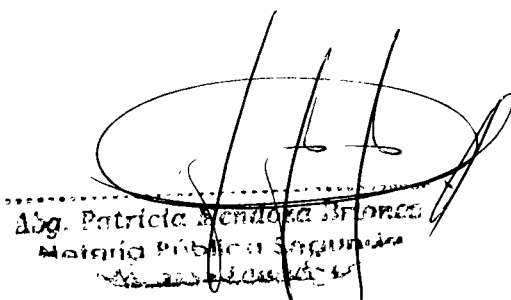 Abg. Patricia Mendoza Briones
Notaria Pública Segunda